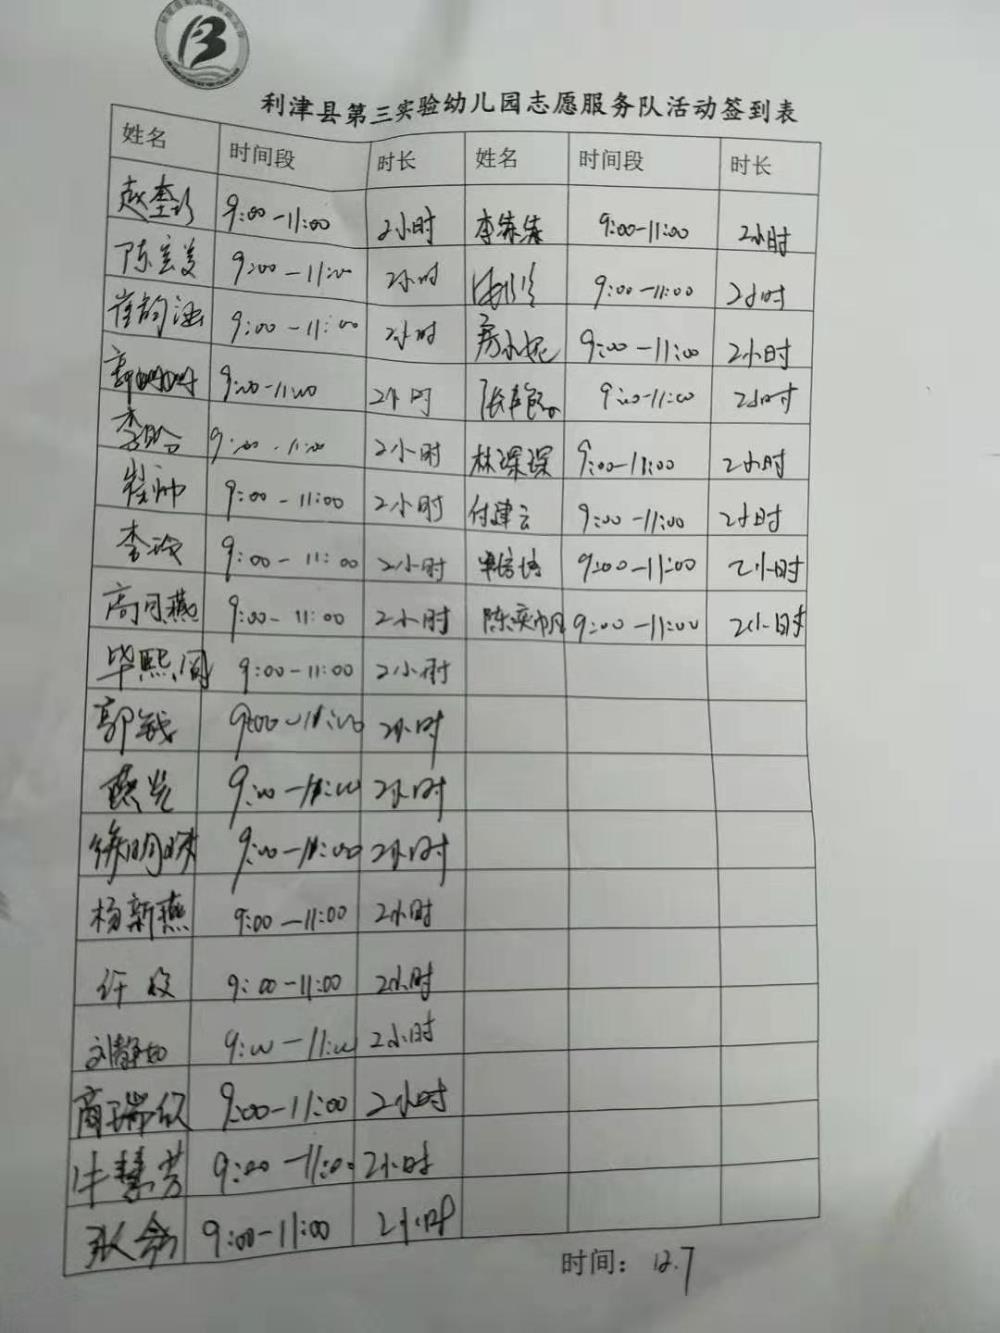 利津县第三实验幼儿园志愿服务队活动签到表
姓名 时间段 时长 姓名 时间段 时长
9:00-11:00 2小时 李 9:00-11:00 2小时
陈 9:00-11:00 2小时 9:00-11:00 2小时
崔 9:00-11:00 2小时 房小妮 9:00-11:00 2小时
郭明明 9:00-11:00 2小时 张 9:00-11:00 2小时
李 9:00-11:00 2小时 林琛琛 9:00-11:00 2小时
崔帅 9:00-11:00 2小时 付建云 9:00-11:00 2小时
李玲 9:00-11:00 2小时 9:00-11:00 2小时
高月燕 9:00-11:00 2小时 陈奕帆 9:00-11:00 2小时
毕熙阁 9:00-11:00 2小时
郭 9:00-11:00 2小时
9:00-11:00 2小时
徐明明 9:00-11:00 2小时
杨新燕 9:00-11:00 2小时
许 9:00-11:00 2小时
刘静如 9:00-11:00 2小时
商瑞欣 9:00-11:00 2小时
牛慧芳 9:00-11:00 2小时
张 9:00-11:00 2小时
时间：12.7